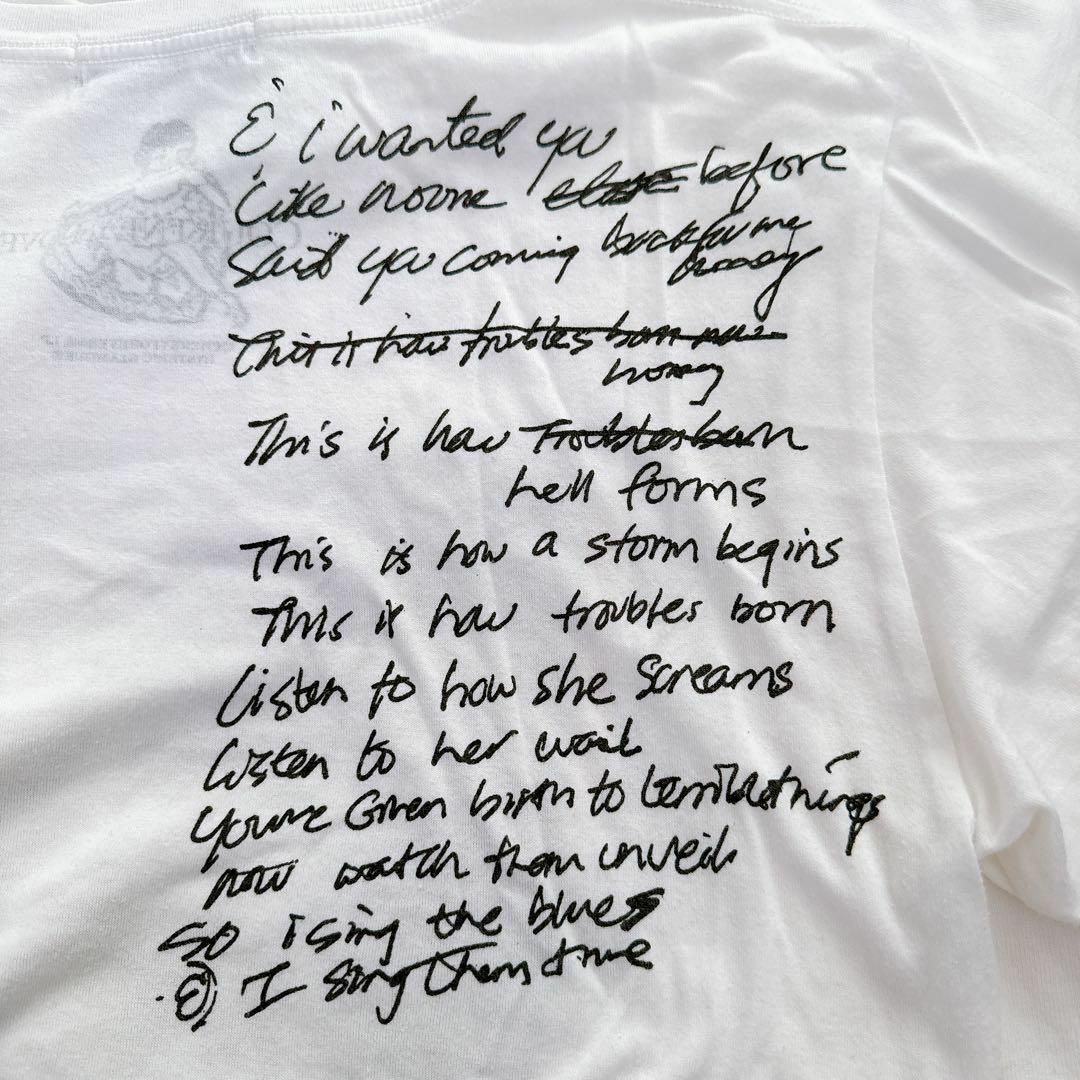 & i wanted ya
Like no one else before
Said you coming back for me
honey
This is how troubles born now
honey
This is how Troubles born
hell forms
This is how a storm begins
This is how troubles born
Listen to how she screams
Listen to her wail
Youve Given birth to terrible things
now watch them unveil
So i sing the blues
& I sing them true